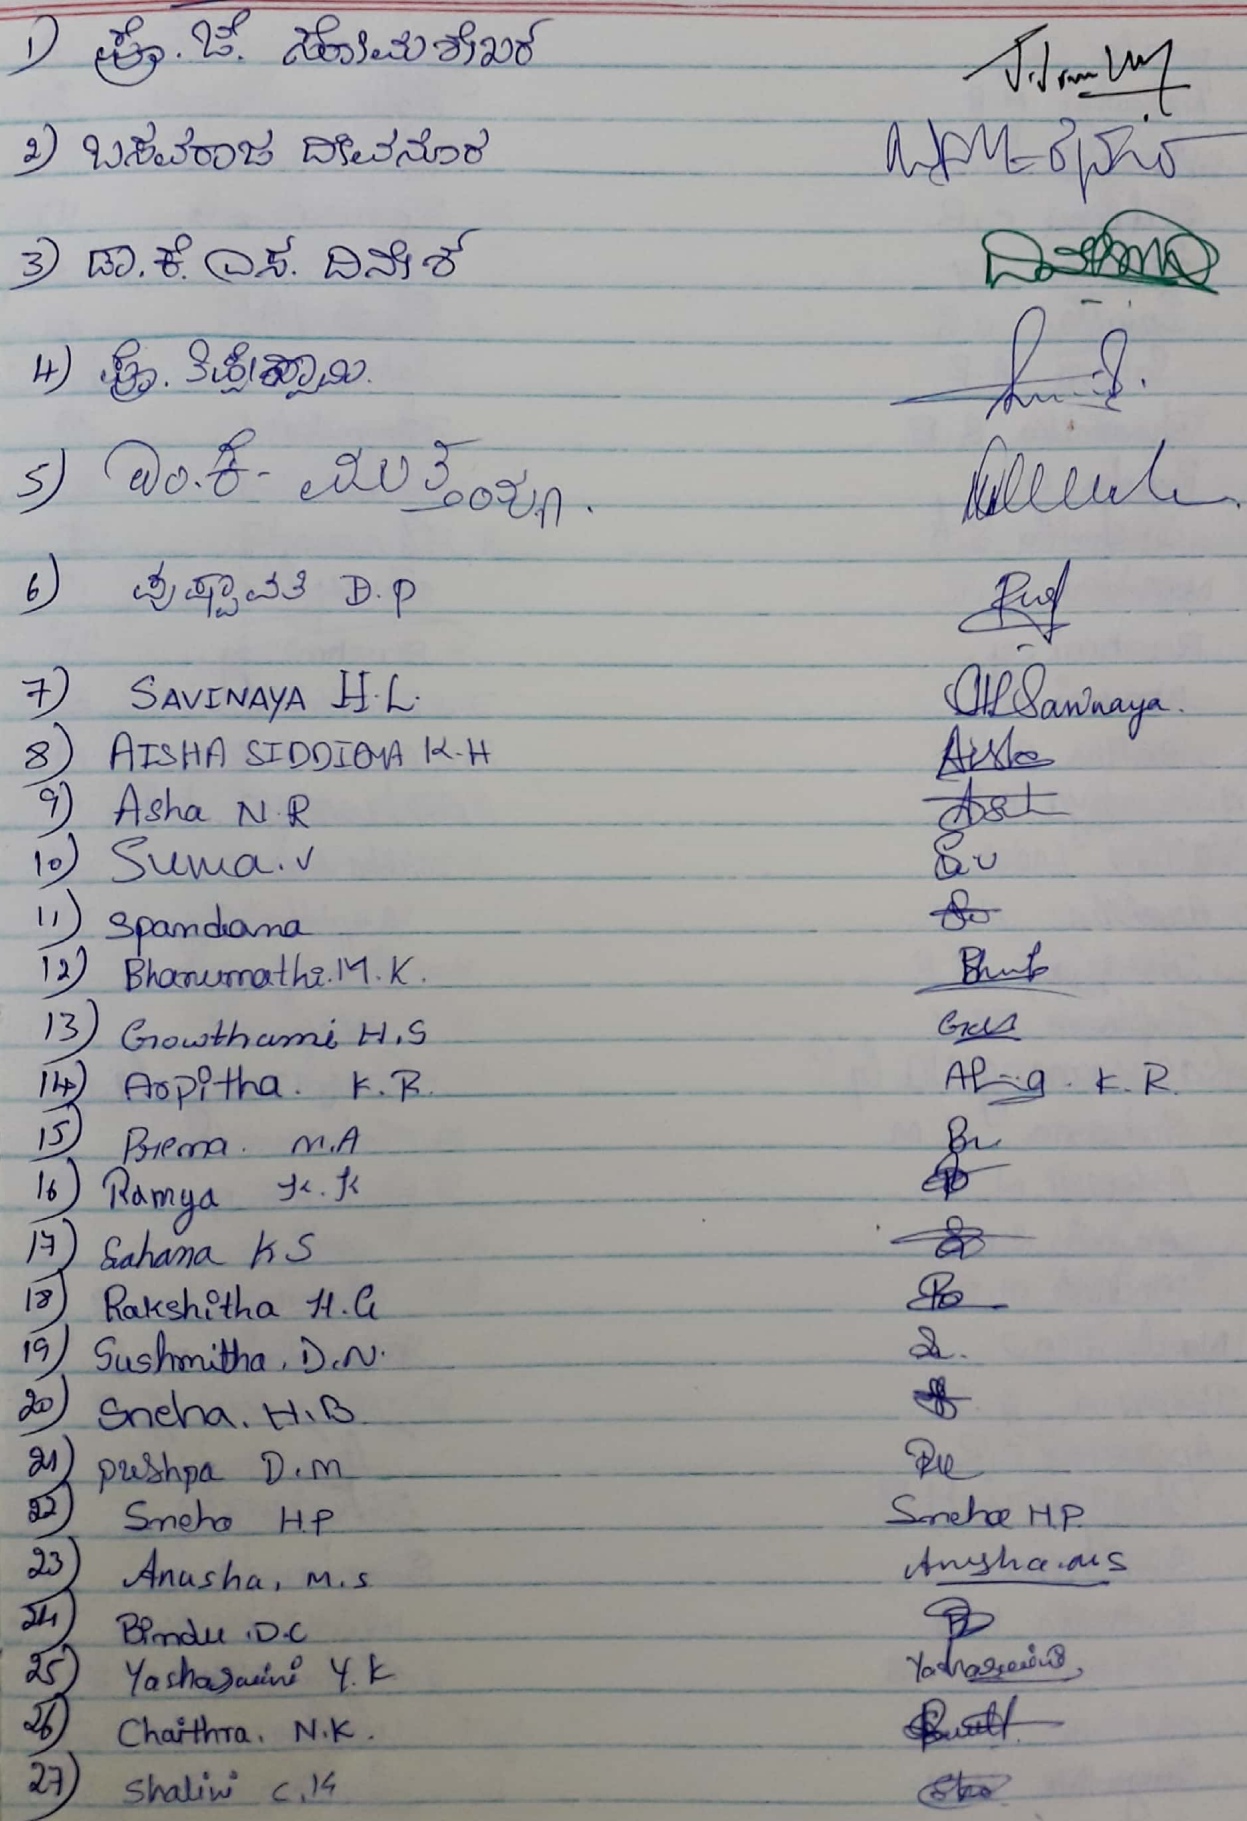 1) ಪ್ರೊ. ಜೆ. ಸೋಮಶೇಖರ
2) ಬಸವರಾಜ ದೇವನೂರ
3) ಡಾ. ಕೆ. ಎಸ. ದಿನೇಶ
4) ಪ್ರೊ. ತಿಪ್ಪೇಸ್ವಾಮಿ.
5) ಎಂ.ಕೆ-
6) ಪುಷ್ಪಾವತಿ D.P
7) SAVINAYA H.L. Savinaya.
8) AISHA SIDDIQA K.H Aisha
9) Asha N.R
10) Suma.V S.v
11) Spandana
12) Bhanumathi.M.K.
13) Gowthami H.S
14) Arpitha. K.R. K.R.
15) Prema. M.A
16) Ramya K.K
17) Sahana K S
18) Rakshitha H.G
19) Sushmitha. D.N.
20) Sneha. H.B
21) Pushpa D.M
22) Sneha H.P Sneha H.P.
23) Anusha, M.S Anusha.M S
24) Bindu .D.C
25) Yashaswini Y.K Yashaswini
26) Chaithra. N.K.
27) Shalini C.K